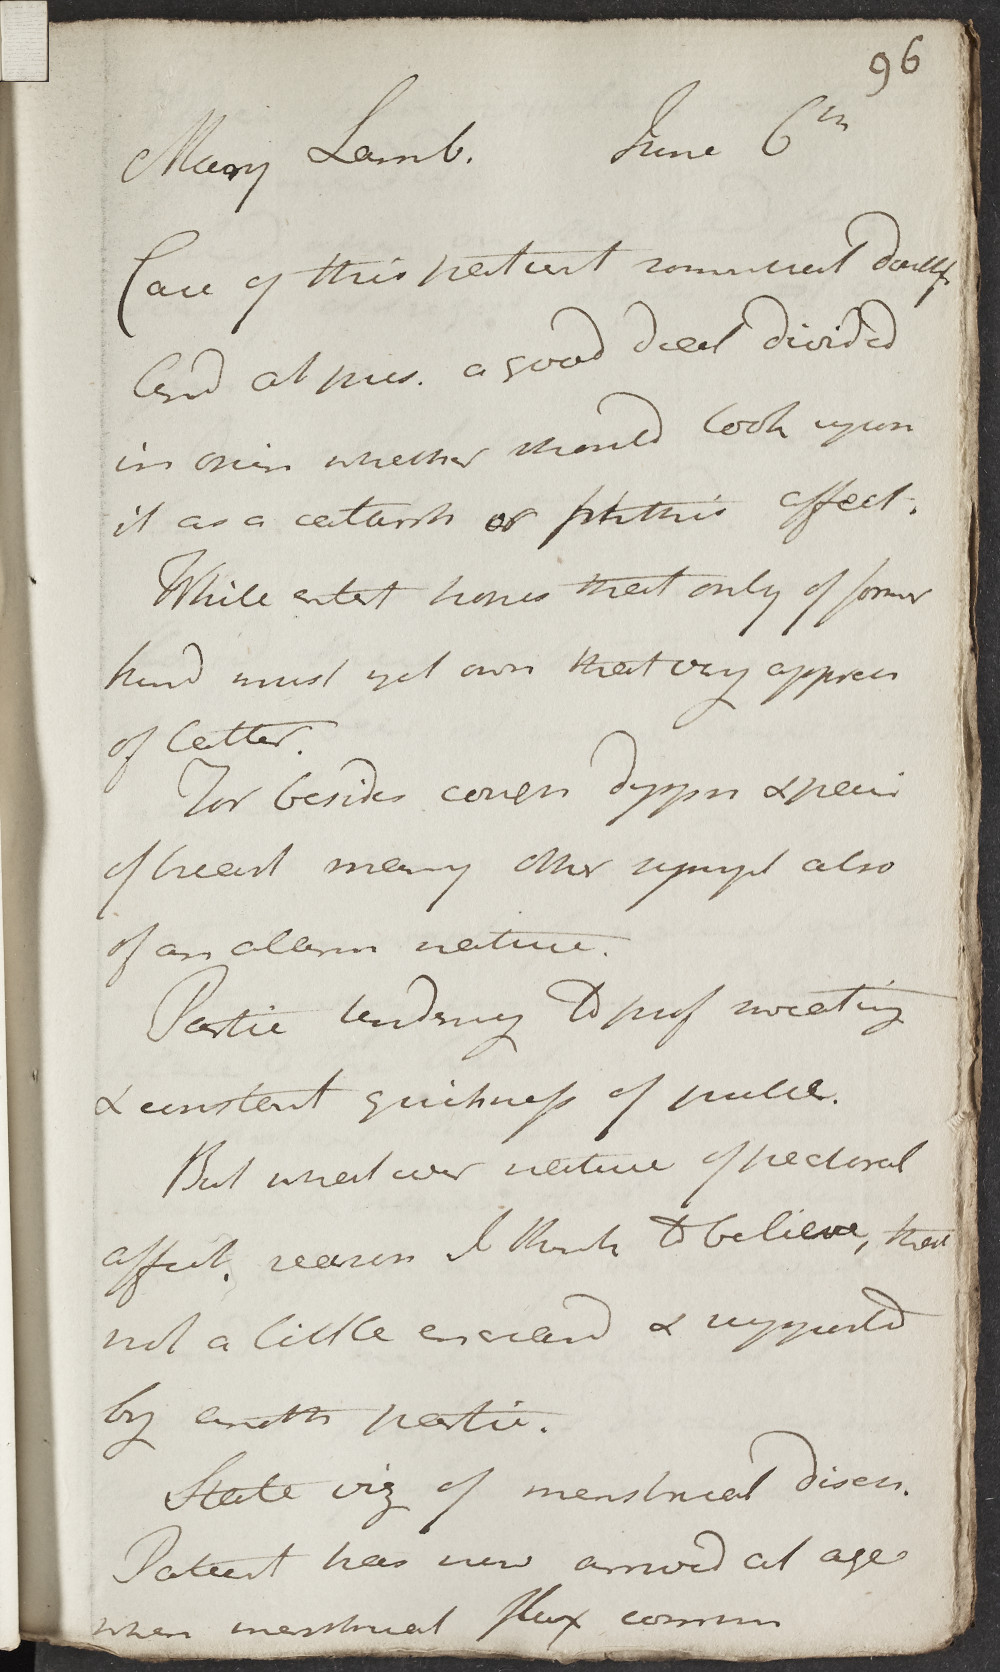 96
Mary Lamb. June 6th
Case of this patient somewhat doubtf
And at pres. a good deal divided
in opin whether should look upon
it as a catarrh or phthis affect.
While entert hopes that only of former
kind must yet own that very appreh
of latter.
For besides cough dyspn & pain
of breast many other sympt also
of an alarm nature.
Partic tendency to prof sweating
& constant quickness of pulse.
But whatever nature of pectoral
affect. reason I think to believe, that
not a little increasd & supportd
by anoth partic.
State viz of menstrual disch.
Patient has now arrived at age
when menstrual flux common